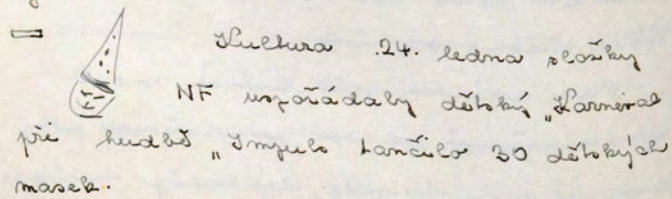 Kultura 24. ledna složky
NF uspořádaly dětský „Karneval
při hudbě „Impuls tančilo 30 dětských
masek.